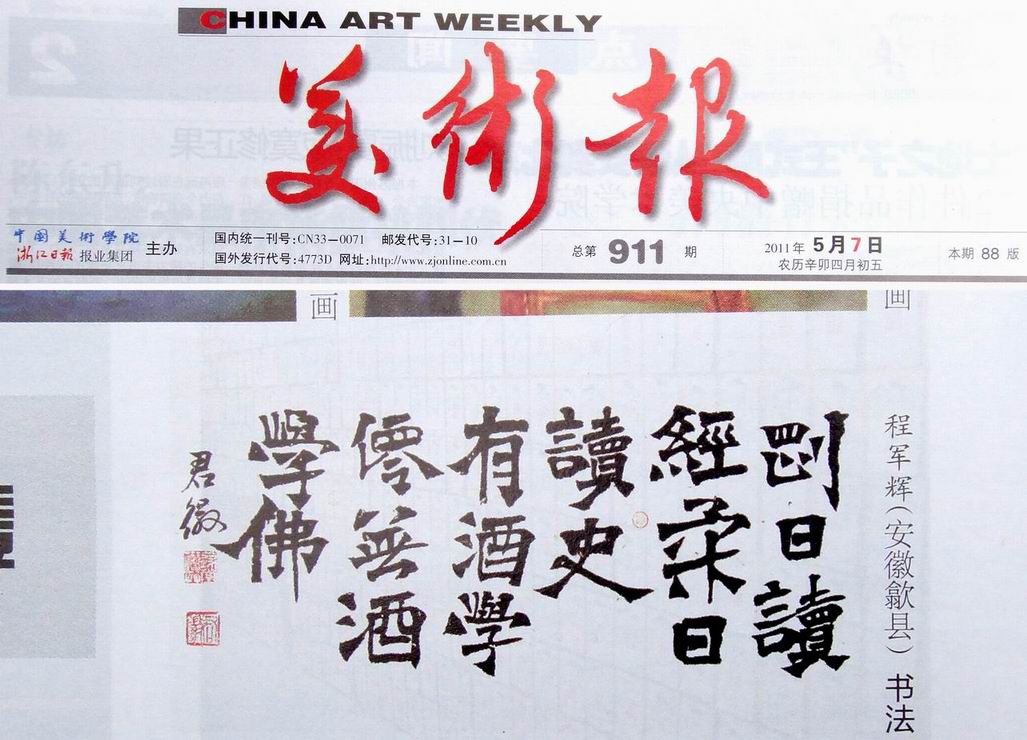 CHINA ART WEEKLY
美術報
中国美術學院
浙江日報 报业集团
主办
国内统一刊号:CN33-0071 邮发代号:31-10
国外发行代号:4773D 网址:http://www.zjonline.com.cn
总第 911 期
2011年 5月7日
农历辛卯四月初五
本期 88 版
画
画
程军辉(安徽歙县) 书法
剛日讀
經柔日
讀史
有酒學
僊無酒
學佛